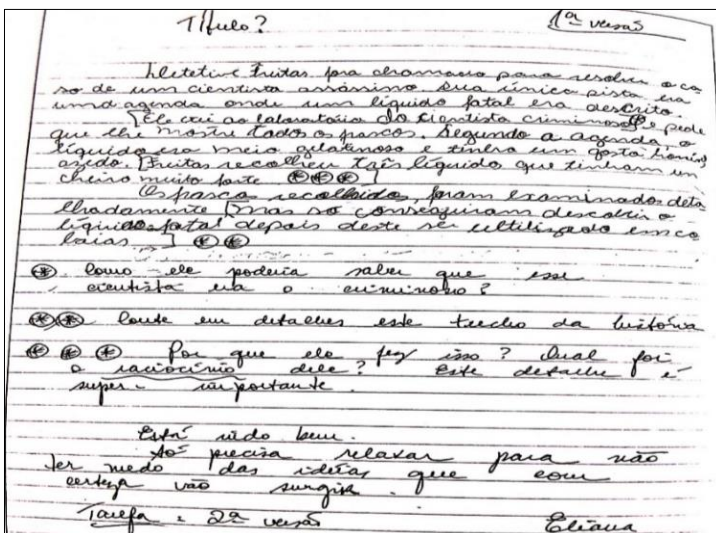 Título? 1ª versão
Detetive Freitas fora chamado para resolver o ca
so de um cientista assassino. Sua única pista era
uma agenda onde um líquido fatal era descrito.
[Ele vai ao laboratório do cientista criminoso (*) e pede
que lhe mostre todos os frascos. Segundo a agenda, o
líquido era meio gelatinoso e tinha um gosto
azedo. [Freitas recolheu três líquido que tinham un
cheiro muito forte (*)(*)(*)]
Os frasco recolhido, foram examinados deta
lhadamente [mas só conseguiram descobrir o
líquido fatal depois deste ser ultilizado em co
baias.] (*)(*)
(*) Como ele poderia saber que esse
cientista era o criminoso?
(*)(*) Conte em detalhes este trecho da história
(*)(*)(*) Por que ele fez isso? Qual foi
o raciocínio dele? Este detalhe é
super-importante.
Está indo bem.
Só precisa relaxar para não
ter medo das idéias que com
certeza vão surgir.
Tarefa: 2ª versão Eliana